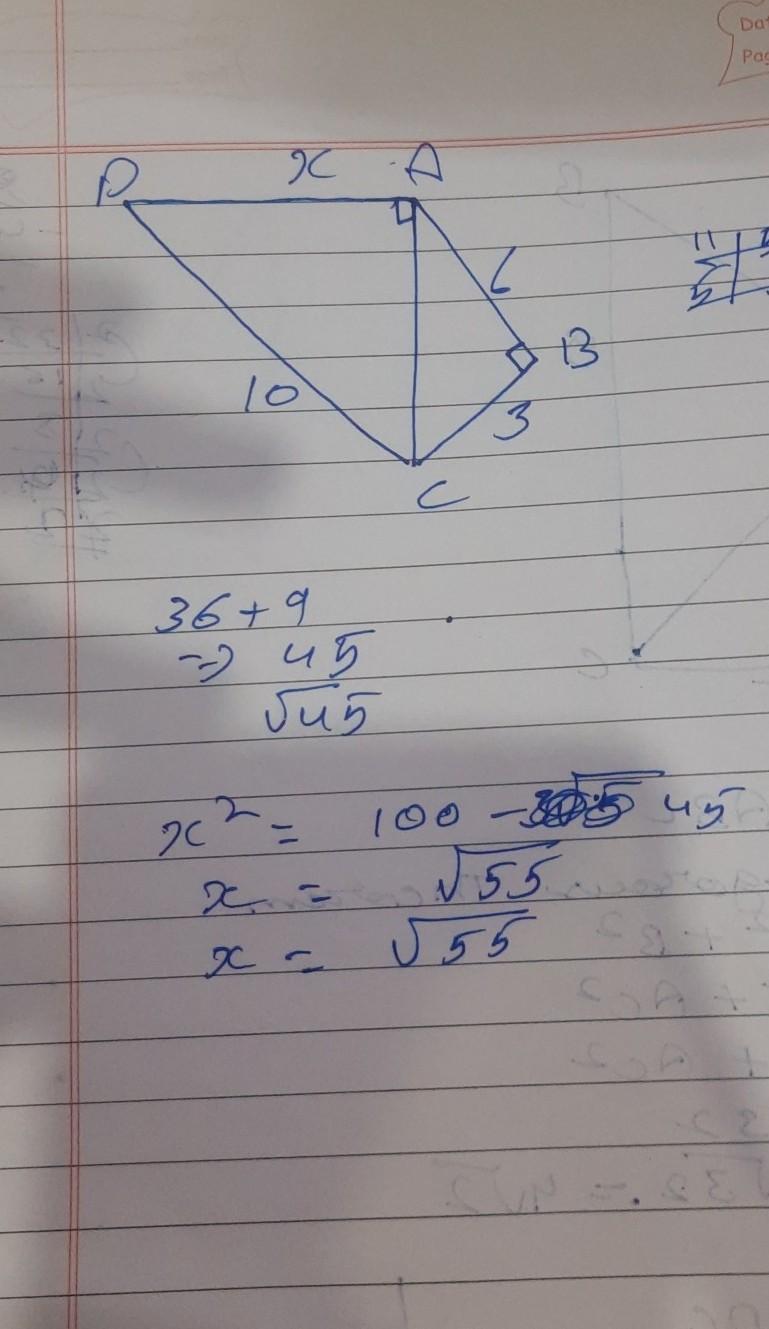 Dat
Pag
D x A
6
B
10
3
C
36 + 9
=> 45
√45
x² = 100 - 45
x = √55
x = √55